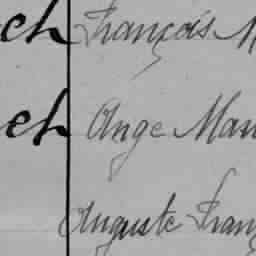 ch François M
ch Ange Mar
Auguste Franç